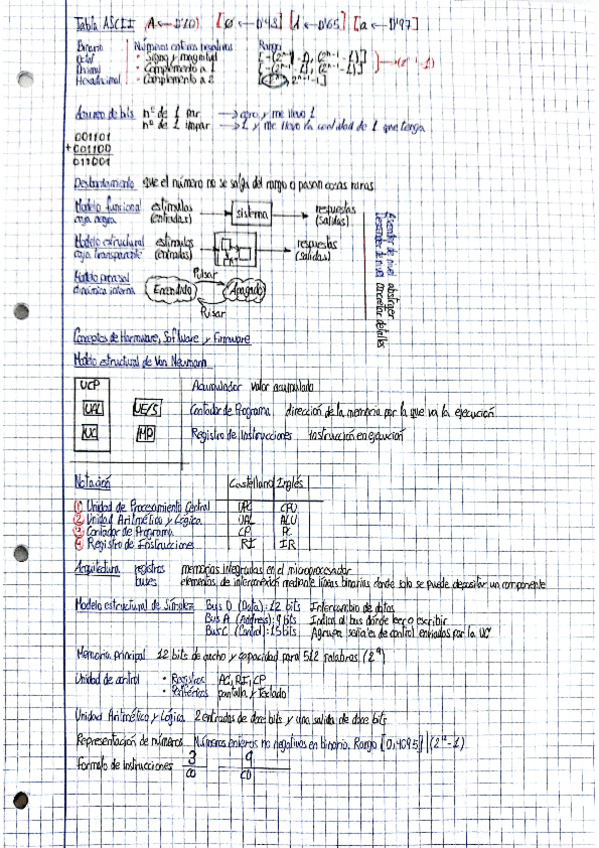 Tabla ASCII (A ← D'10) [0 ← D'48] [A ← D'65] [a ← D'97]
Binario Números enteros negativos Rango
Octal · Signo y magnitud [-(2ⁿ⁻¹-1), (2ⁿ⁻¹-1)]
Decimal · Complemento a 1 [-(2ⁿ⁻¹-1), (2ⁿ⁻¹-1)]
Hexadecimal · Complemento a 2
Acarreo de bits nº de 1 par → cero y me llevo 1
nº de 1 impar → 1 y me llevo la cantidad de 1 que tenga
001101
+001100
011001
Desbordamiento que el número no se salga del rango o pasan cosas raras
Modelo funcional estímulos → sistema → respuestas
caja negra (entradas) (salidas)
Modelo estructural estímulos respuestas
caja transparente (entradas) (salidas)
Modelo procesal Pulsar
dinámica interna Encendido Apagado
Pulsar
Ascender de nivel abstraer
Descender de nivel concretar detalles
Conceptos de Harmware, Software y Firmware
Modelo estructural de Von Neumann
UCP Acumulador valor acumulado
UAL UE/S Contador de Programa dirección de la memoria por la que va la ejecución
UC MP Registro de Instrucciones instrucción en ejecución
Notación Castellano Inglés
1 Unidad de Procesamiento Central UPC CPU
2 Unidad Aritmético y Lógica UAL ALU
3 Contador de Programa CP PC
4 Registro de Instrucciones RI IR
Arquitectura registros memorias integradas en el microprocesador
buses elementos de interconexión mediante líneas binarias donde solo se puede depositar un componente
Modelo estructural de Símplez Bus D (Data): 12 bits Intercambio de datos
Bus A (Address): 9 bits Indica al bus dónde leer o escribir
Bus C (Control): 15 bits Agrupa señales de control enviadas por la UC
Memoria principal 12 bits de ancho y capacidad para 512 palabras (2⁹)
Unidad de control · Registros AC, RI, CP
· Periféricos pantalla y teclado
Unidad Aritmético y Lógica 2 entradas de doce bits y una salida de doce bits
Representación de números Números enteros no negativos en binario. Rango [0,4095] (2ⁿ-1)
Formato de instrucciones 3 9
CO CD